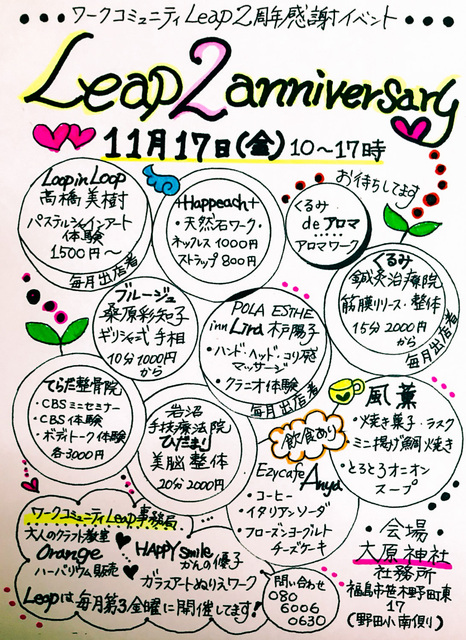 ワークコミュニティLeap2周年感謝イベント
Leap 2 anniversary
11月17日(金) 10〜17時
お待ちしてます
Loop in Loop
高橋美樹
パステルシャインアート
体験
1500円〜
毎月出店者
+Happeach+
・天然石ワーク・
ネックレス1000円
ストラップ800円
くるみ
de アロマ
アロマワーク
くるみ
鍼灸治療院
筋膜リリース・整体
15分2000円
から
毎月出店者
ブルージュ
桑原彩知子
ギリシャ式手相
10分1000円
から
POLA ESTHE
inn Lira 木戸陽子
・ハンド・ヘッド・コリ筋
マッサージ
・クラニオ体験
毎月出店者
てらだ整骨院
・CBSミニセミナー
・CBS体験
・ボディトーク体験
各3000円
岩沼
手技療法院
ひだまり
美脳整体
20分2000円
飲食あり
Ezycafe Anya
・コーヒー
・イタリアンソーダ
・フローズンヨーグルト
チーズケーキ
風菓
・焼き菓子・ラスク
・ミニ揚げ鯛焼き
・とろとろオーオン
スープ
ワークコミュニティLeap事務局
大人のクラフト教室
Orange
ハーバリウム販売
HAPPY Smile
かんの優子
ガラスアートぬりえワーク
Leapは毎月第3金曜に開催してます!
問い合わせ
080
6006
0630
・会場・
大原神社
社務所
福島市笹木野町東
17
(野田小南側)